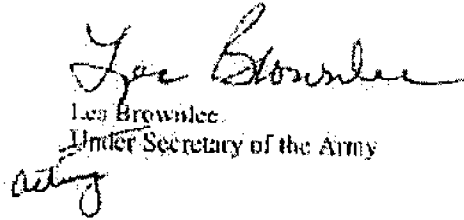 Les Brownlee
Les Brownlee
Under Secretary of the Army
acting